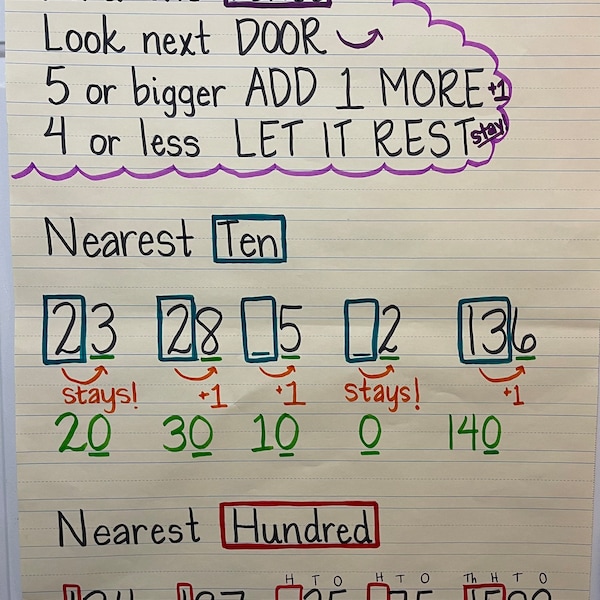 Look next DOOR
5 or bigger ADD 1 MORE +1
4 or less LET IT REST stay!
Nearest Ten
23 28 _5 _2 136
stays! +1 +1 stays! +1
20 30 10 0 140
Nearest Hundred
H T O H T O Th H T O